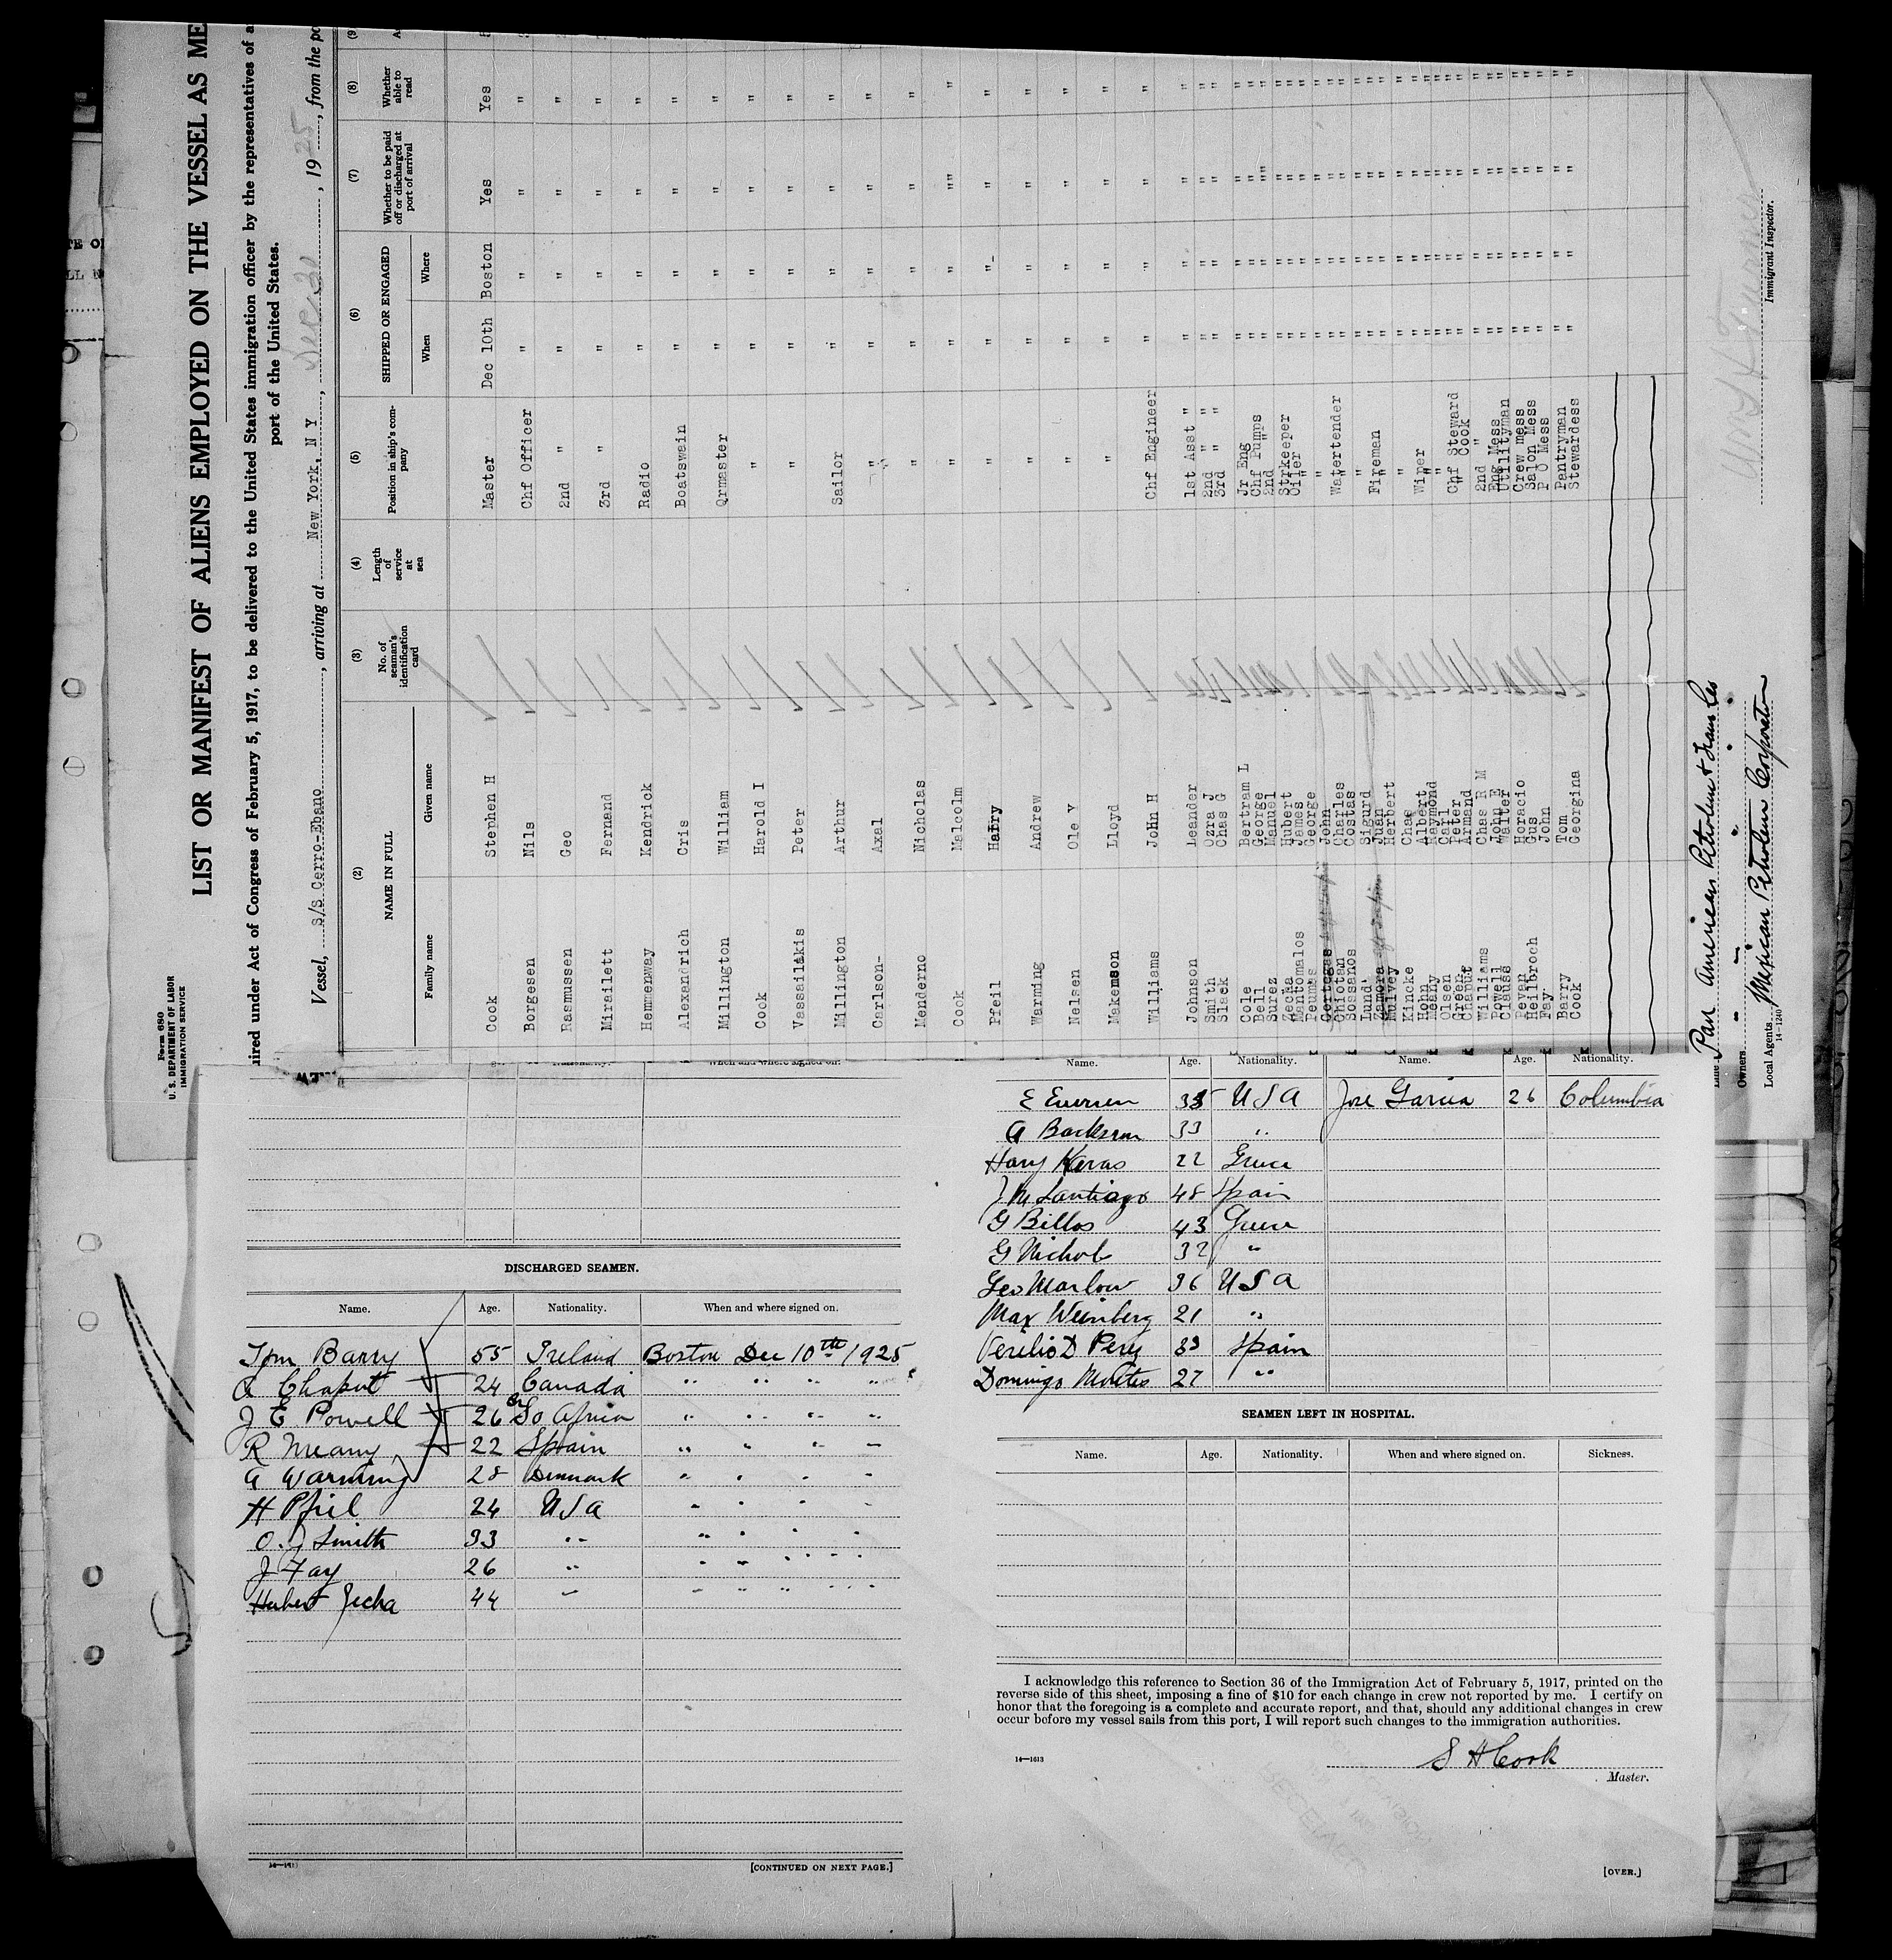 Form 680
U. S. DEPARTMENT OF LABOR
IMMIGRATION SERVICE
LIST OR MANIFEST OF ALIENS EMPLOYED ON THE VESSEL AS ME
ired under Act of Congress of February 5, 1917, to be delivered to the United States immigration officer by the representatives of a
port of the United States.
Vessel, S/S Cerro-Ebano, arriving at New York, N Y, Dec 30, 1925, from the po
(2) (3) (4) (5) (6) (7) (8)
NAME IN FULL No. of seaman's identification card Length of service at sea Position in ship's company SHIPPED OR ENGAGED Whether to be paid off or discharged at port of arrival Whether able to read
Family name Given name When Where
Cook Stephen H Master Dec 10th Boston Yes Yes
Borgesen Nils Chf Officer " " " "
Rasmussen Geo 2nd " " " " "
Mirailett Fernand 3rd " " " " "
Hemmenway Kendrick Radio " " " "
Alexandrich Cris Boatswain " " " "
Millington William Qrmaster " " " "
Cook Harold I " " " " "
Vassailakis Peter " " " " "
Millington Arthur Sailor " " " "
Carlson- Axal " " " " "
Menderno Nicholas " " " " "
Cook Malcolm " " " " "
Pfeil Harry " " " " "
Warming Andrew " " " " "
Nelsen Ole V " " " " "
Makemson Lloyd " " " " "
Williams John H Chf Engineer " " " "
Johnson Leander 1st Asst " " " " "
Smith Ozra J 2nd " " " " " "
Slack Chas G 3rd " " " " " "
Cole Bertram L Jr Eng " " " "
Bell George Chf Pumps " " " "
Surez Manuel 2nd " " " " "
Zecka Hubert Strkeeper " " " "
Mantomalos James Oiler " " " "
Peumas George " " " " "
John " " " "
Chiotan Charles Watertender " " " "
Sossanos Costas " " " " "
Lund Sigurd " " " " "
Zamora Juan Fireman " " " "
Mulvey Herbert " " " "
Kincke Chas " " " " "
Hohn Albert Wiper " " " "
Meany Raymond " " " " "
Olsen Carl " " " " "
Green Peter Chf Steward " " " "
Chaput Armand " Cook " " " "
Williams Chas R M 2nd " " " " "
Powell John E Eng Mess " " " "
Clauss Walter Utilityman " " " "
Pevan Horacio Crew mess " " " "
Heilbroch Gus Salon Mess " " " "
Fay John P O Mess " " " "
Barry Tom Pantryman " " " "
Cook Georgina Stewardess " " " "
Pan American Petroleum & Trans Co
Owners " " " "
Local Agents Mexican Petroleum Corporation
14-1240
Immigrant Inspector.
When and where signed on.
DISCHARGED SEAMEN.
Name. Age. Nationality. When and where signed on.
Tom Barry 55 Ireland Boston Dec 10th 1925
A Chaput 24 Canada " " " "
J E Powell 26 So Africa " " " "
R Meany 22 Spain " " " "
A Warming 28 Denmark " " " "
H Pfiel 24 USA " " " "
O. J Smith 33 " " " " "
J Fay 26 " " " " "
Hubert Zecha 44 " " " " "
[CONTINUED ON NEXT PAGE.]
Name. Age. Nationality. Name. Age. Nationality.
E Eversen 35 USA Jose Garcia 26 Columbia
A Backsson 33 "
Hary Karas 22 Greece
J M Santiago 48 Spain
G Billos 43 Greece
G Nichols 32 "
Geo Marlow 36 USA
Max Weinberg 21 "
D Perez 33 Spain
Domingo 27 "
SEAMEN LEFT IN HOSPITAL.
Name. Age. Nationality. When and where signed on. Sickness.
I acknowledge this reference to Section 36 of the Immigration Act of February 5, 1917, printed on the
reverse side of this sheet, imposing a fine of $10 for each change in crew not reported by me. I certify on
honor that the foregoing is a complete and accurate report, and that, should any additional changes in crew
occur before my vessel sails from this port, I will report such changes to the immigration authorities.
14—1613
S H Cook
Master.
[OVER.]